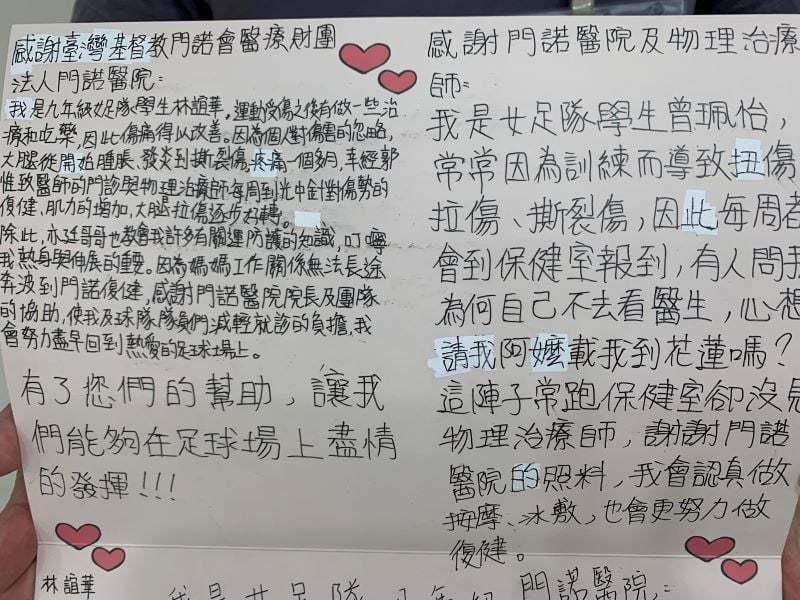 感謝臺灣基督教門諾會醫療財團
法人門諾醫院：
我是九年級女足隊學生林誼華。運動受傷之後有做一些治
療和吃藥，因此傷痛得以改善。因為個人對傷害的忽略，
大腿從開始腫脹、發炎到撕裂傷，疼痛一個多月，幸經郭
惟致醫師的門診與物理治療師每周到光中針對傷勢的
復健、肌力的增加，大腿拉傷逐步好轉。
除此，亦廷哥哥也教會我許多有關運防護的知識，叮嚀
我熱身與伸展的重要。因為媽媽工作關係無法長途
奔波到門諾復健，感謝門諾醫院院長及團隊
的協助，使我及球隊隊員們減輕就診的負擔，我
會努力盡早回到熱愛的足球場上。
有了您們的幫助，讓我
們能夠在足球場上盡情
的發揮!!!
林誼華
感謝門諾醫院及物理治療
師：
我是女足隊學生曾珮怡，
常常因為訓練而導致扭傷
拉傷、撕裂傷，因此每周都
會到保健室報到，有人問我
為何自己不去看醫生，心想
請我阿嬤載我到花蓮嗎？
這陣子常跑保健室卻沒見
物理治療師，謝謝門諾
醫院的照料，我會認真做
按摩、冰敷，也會更努力做
復健。
我是女足隊
門諾醫院：